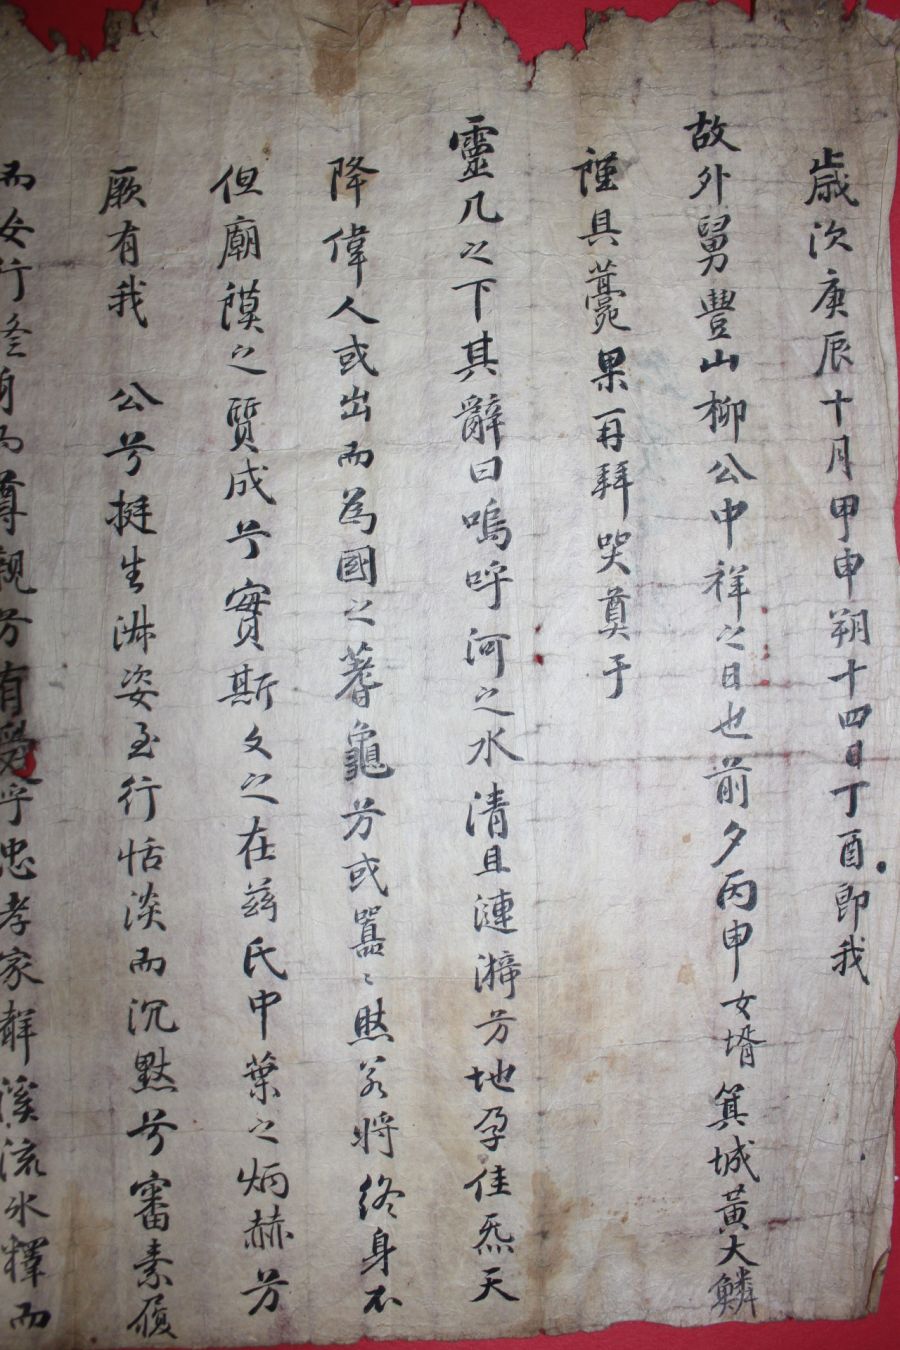 歲次庚辰十月甲申朔十四日丁酉即我
故外舅豐山柳公中祥之日也前夕丙申女壻箕城黃大鱗
謹具薨果再拜哭奠于
靈几之下其辭曰嗚呼河之水清且漣漪兮地孕佳炁天
降偉人或出而為國之蓍龜兮或囂〻然若將終身不
但廟謨之質成兮實斯文之在茲氏中葉之炳赫兮
厥有我 公兮挺生淋姿至行恬淡而沉默兮審素履
而女行 而尊親兮有 乎忠孝家 溪流氷釋而